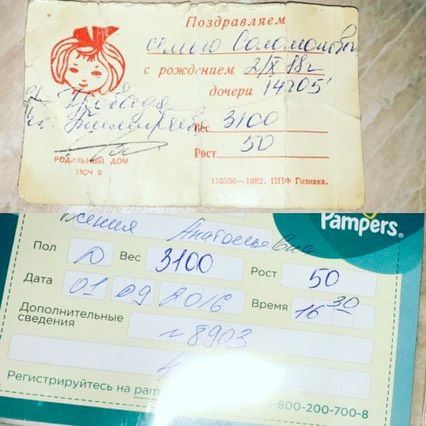 Поздравляем
семью
с рождением 2/X 18ч
дочери 14-05'
Вес 3100
Рост 50
РОДИЛЬНЫЙ ДОМ
МСЧ 9
113530—1982. ППФ Гознака.
Ксения Анатольевна
Pampers
Пол Д Вес 3100 Рост 50
Дата 01 09 2016 Время 16 30
Дополнительные
сведения
№ 8903
Регистрируйтесь на pam
8-800-200-700-8